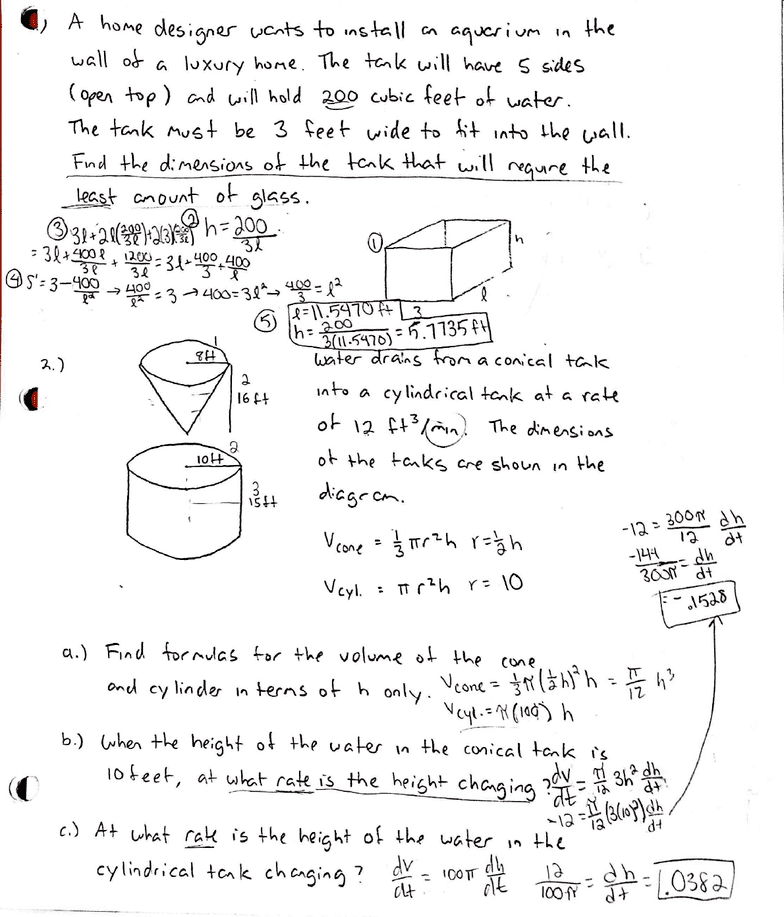 1.) A home designer wants to install an aquarium in the
wall of a luxury home. The tank will have 5 sides
(open top) and will hold 200 cubic feet of water.
The tank must be 3 feet wide to fit into the wall.
Find the dimensions of the tank that will require the
least amount of glass.
③ 3l+2l(200/3l)+2(3)(200/3l) ② h = 200/3l
= 3l + 400l/3l + 1200/3l = 3l + 400/3 + 400/l
④ S' = 3 - 400/l² → 400/l² = 3 → 400 = 3l² → 400/3 = l²
① h l 3
⑤ l = 11.5470 ft
h = 200/3(11.5470) = 5.7735 ft
2.) 8ft 1 2 16 ft
10ft 2 3 15ft
Water drains from a conical tank
into a cylindrical tank at a rate
of 12 ft³/min. The dimensions
of the tanks are shown in the
diagram.
V cone = 1/3 πr²h r = 1/2 h
V cyl. = πr²h r = 10
-12 = 300π/12 dh/dt
-144/300π = dh/dt
= -.1528
a.) Find formulas for the volume of the cone
and cylinder in terms of h only. V cone = 1/3 π(1/2 h)² h = π/12 h³
V cyl. = π(100) h
b.) When the height of the water in the conical tank is
10 feet, at what rate is the height changing? dv/dt = π/12 3h² dh/dt
-12 = π/12 (3(10)²) dh/dt
c.) At what rate is the height of the water in the
cylindrical tank changing? dv/dt = 100π dh/dt 12/100π = dh/dt = .0382